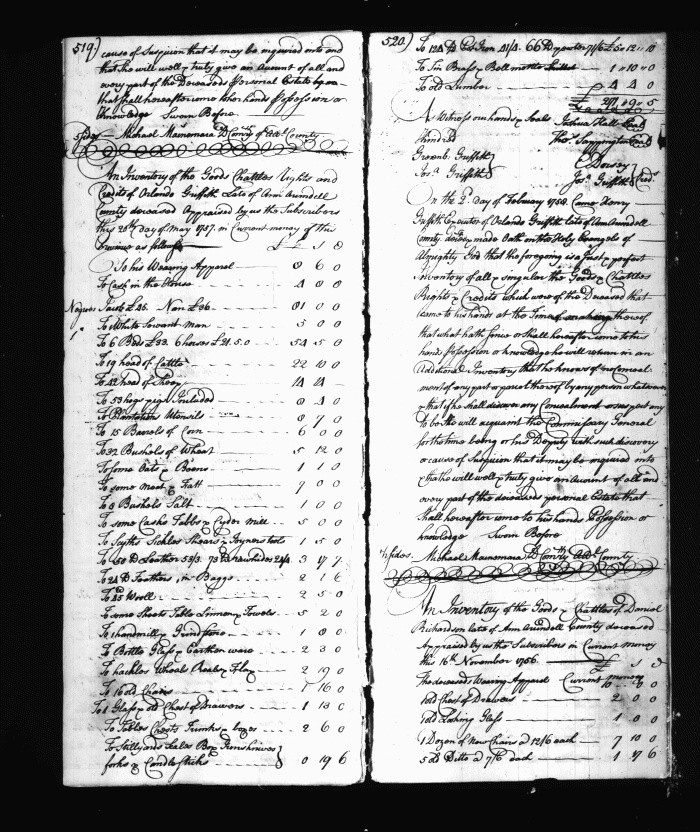 519)
cause of Suspicion that it may be inquired into and
that She will well & truly give an Account of all and
every part of the Deceaseds Personal Estate
that shall hereafter come to her hands Possession or
Knowledge Sworn Before
Michael Macnemara Dy Comry of AAl County
An Inventory of the Goods Chattles Rights and
Credits of Orlando Griffith Late of Ann Arundell
County deceased Appraised by us the Subscribers
this 28th Day of May 1757. in Current money of this
Province as follows £ S D
To his Wearing Apparel 8 6 0
To Cash in the House 4 0 0
Negroes £45. Nan £36 81 0 0
To White Servant man 5 0 0
To 6 Beds £33. 6 horses £21.5.0 54 5 0
To 19 head of Cattle 22 10 0
To 42 head of Sheep 14 14
To 53 hogs pigs Included 8 4 0
To Plantation Utensils 8 7 0
To 15 Barrels of Corn 6 0 0
To 32 Bushels of Wheat 5 12 0
To some Oats & Beens 1 1 0
To some Meat & Fatt 9 0 0
To 8 Bushels Salt 1 0 0
To some Casks Tubbs & Cyder mill 5 0 0
To Scyths Sickles Shears & Joyners tools 1 5 0
To 50 lb Leather 53/3. 73 lb rawhides 24/4 3 17 7
To 24 lb Feathers, in Baggs 2 1 6
To 45 Wooll 2 5 0
To some Sheets Table Linnen & Towels 5 2 0
To 1 handmill & Grindstone 1 8 0
To Bottles Glass & Earthen ware 2 3 0
To hackles Wheals Reales & Flax 2 19 0
To 16 old Chairs 1 16 0
To 1 Glass & old Chest of Drawers 1 13 0
To Tables Chests Trunks & boxes 2 6 0
To Stillyards Sales Box Irons knives
forks & Candle Sticks 0 19 6
520)
To 124 lb Pot Iron 41/4. 66 lb pewter 71/6 £5 12 10
To Tin Brass & Bell mettle 1 10 0
To old Lumber 4 4 0
£ 271 9 5
As Witness our hands & Seals Joshua Hall
Thos. Sappington
Kindred
Greenb. Griffith
Griffith
E Dorsey
Josa. Griffith
Creds
On the 2d. day of February 1758. Came Henry
Griffith Executor of Orlando Griffith late of Ann Arundell
County and made Oath on the Holy Evangels of
Almighty God that the foregoing is a Just & perfect
Inventory of all & singular the Goods & Chattles
Rights & Credits which were of the Deceased that
came to his hands at the Time of making thereof
that what hath since or Shall hereafter come to his
hands Possession or knowledge he will return in an
Additional Inventory that he knows of no Conceal
ment of any part or parcel thereof by any person whatsoever
& that if he shall discover any Concealment or suspect any
to be he will acquaint the Commissary General
for the time being or his Deputy with such discovery
or cause of Suspicion that it may be inquired into
& that he will well & truly give an Account of all and
every part of the deceaseds personal Estate that
Shall hereafter come to his hands Possession or
Knowledge Sworn Before
Michael Macnemara Dy Comry AAl County
An Inventory of the Goods & Chattles of Daniel
Richardson late of Ann Arundell County deceased
Appraised by us the Subscribers in Current money
this 16th November 1756. £ S D
The deceased Wearing Apparel Current money 10 0 0
1 old Chest of Drawers 2 0 0
1 old Looking Glass 1 0 0
1 Dozen of New Chairs a 12/6 each 7 10 0
5 old Ditto a 7/6 each 1 17 6